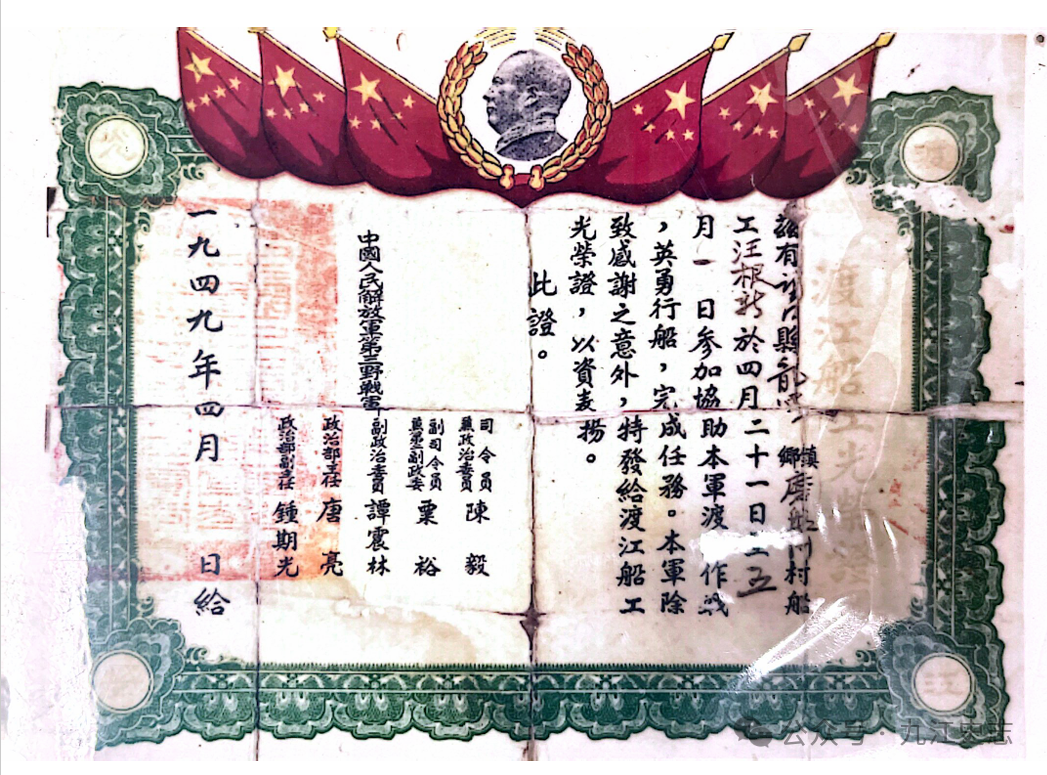 渡江船工光榮證
茲有 縣龍 鎮鄉 村船
工汪根新於四月二十一日至五
月一日參加協助本軍渡 作戰
，英勇行船，完成任務。本軍除
致感謝之意外，特發給渡江船工
光榮證，以資表揚。
此證。
中國人民解放軍第三野戰軍
司令員兼政治委員 陳毅
副司令員兼第二副政委 粟裕
副政治委員 譚震林
政治部主任 唐亮
政治部副主任 鍾期光
一九四九年四月 日給
公众号·九江史志